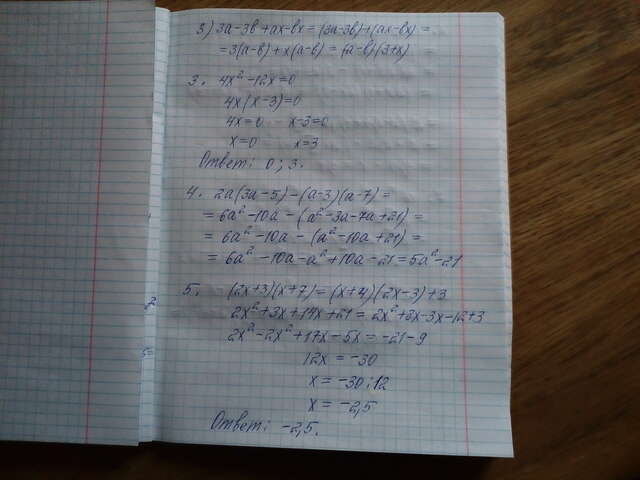 3) 3a-3в+ax-вx=(3a-3в)+(ax-вx)=
=3(a-в)+x(a-в)=(a-в)(3+x)
3. 4x²-12x=0
4x(x-3)=0
4x=0 x-3=0
x=0 x=3
Ответ: 0; 3.
4. 2a(3a-5)-(a-3)(a-7)=
=6a²-10a-(a²-3a-7a+21)=
=6a²-10a-(a²-10a+21)=
=6a²-10a-a²+10a-21=5a²-21
5. (2x+3)(x+7)=(x+4)(2x-3)+3
2x²+3x+14x+21=2x²+8x-3x-12+3
2x²-2x²+17x-5x=-21-9
12x=-30
x=-30:12
x=-2,5
Ответ: -2,5.